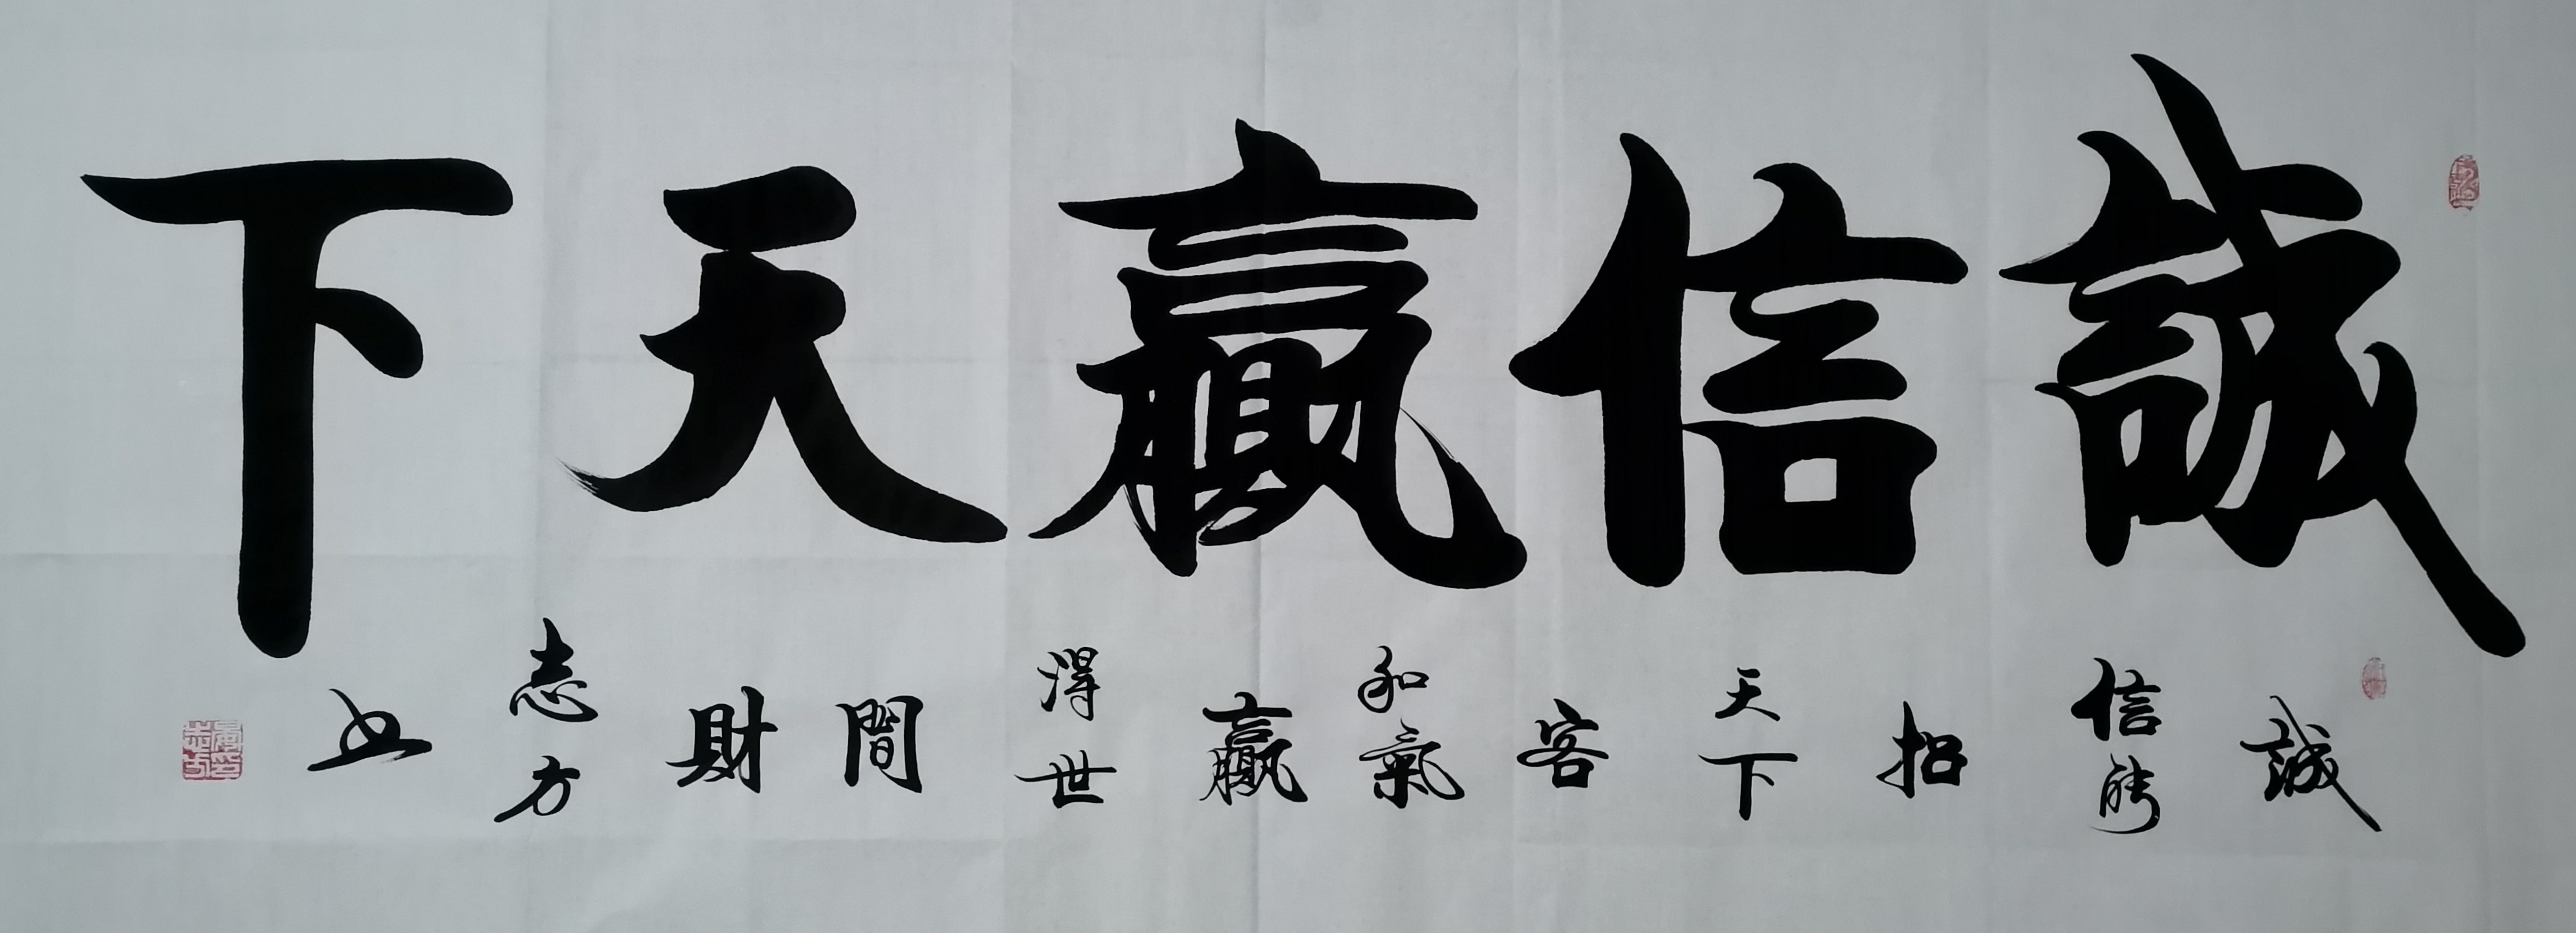 誠信赢天下
誠信能招天下客和氣赢得世間財志方書